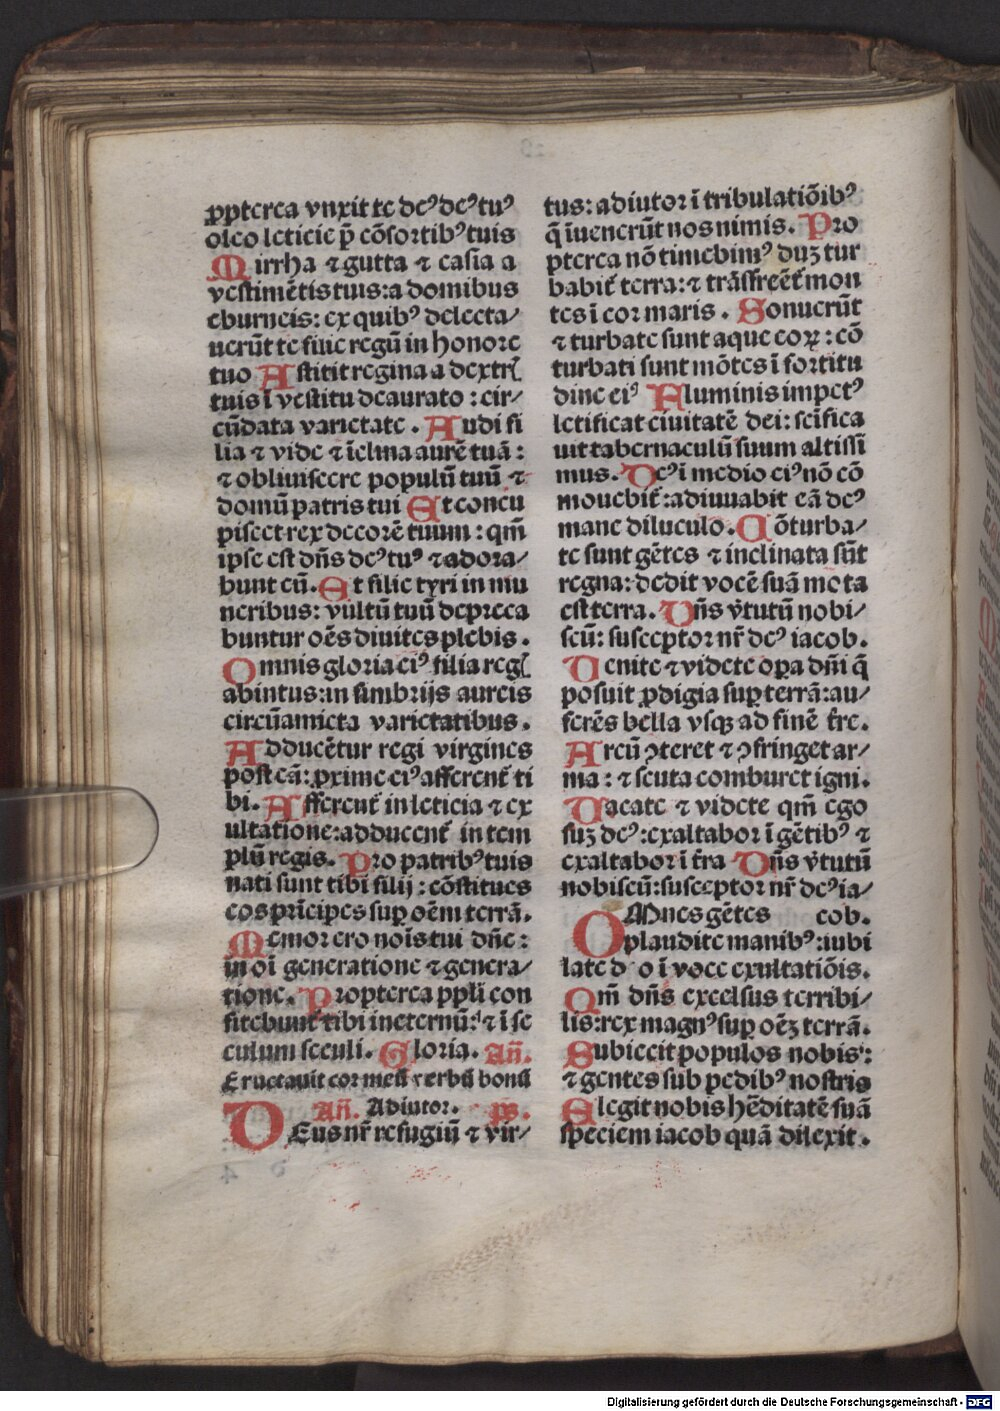 ꝓpterea vnxit te deꝰ deꝰ tuꝰ
oleo leticie p̄ cōsortibꝰ tuis
Mirrha ⁊ gutta ⁊ casia a
vestimētis tuis: a domibus
eburneis: ex quibꝰ delecta/
uerūt te filie regū in honore
tuo Astitit regina a dextrꝭ
tuis ī vestitu deaurato : cir/
cūdata varietate . Audi fi
lia ⁊ vide ⁊ īclina aurē tuā :
⁊ obliuiscere populū tuū ⁊
domū patris tui Et concu
piscet rex decorē tuum : qm̄
ipse est dn̄s deꝰ tuꝰ ⁊ adora/
bunt eū. Et filie tyri in mu
neribus: vultū tuū depreca
buntur oēs diuites plebis .
Omnis gloria eiꝰ filia regꝭ
abintus: in fimbrijs aureis
circūamicta varietatibus .
Adducētur regi virgines
post eā: ꝓxime eiꝰ afferent̄ ti
bi. Afferent̄ in leticia ⁊ ex
ultatione: adducent̄ in tem
plū regis. Pro patribꝰ tuis
nati sunt tibi filij : cōstitues
eos prīcipes suꝑ oēm terrā.
Memor ero noīs tui dn̄e :
in oī generatione ⁊ genera/
tione. Propterea ppl̄i con
fitebunt̄ tibi in eternū: ⁊ ī se
culum seculi. Gloria. An̄.
Eructauit cor meū verbū bonū
An̄. Adiutor. ps.
DEus nr̄ refugiū ⁊ vir/
tus: adiutor ī tribulatiōibꝰ
q̄ īuenerūt nos nimis. Pro
pterea nō timebimꝰ duꝫ tur
babit̄ terra: ⁊ trāsfreēt̄ mon
tes ī cor maris . Sonuerūt
⁊ turbate sunt aque eoꝝ : cō
turbati sunt mōtes ī fortitu
dine eiꝰ Fluminis impetꝰ
letificat ciuitatē dei: scīfica
uit tabernaculū suum altissi
mus. Deꝰ ī medio eiꝰ nō cō
mouebit̄: adiuuabit eā deꝰ
mane diluculo. Cōturba/
te sunt gētes ⁊ inclinata sūt
regna: dedit vocē suā mota
est terra. Dn̄s v̄tutū nobi/
scū: susceptor nr̄ deꝰ iacob.
Uenite ⁊ videte oꝑa dn̄i q̄
posuit ꝓdigia suꝑ terrā: au/
ferēs bella vsqꝫ ad finē tr̄e.
Arcū ꝯteret ⁊ ꝯfringet ar/
ma : ⁊ scuta comburet igni.
Uacate ⁊ videte qm̄ ego
suꝫ deꝰ: exaltabor ī gētibꝰ ⁊
exaltabor ī tr̄a Dn̄s v̄tutū
nobiscū: susceptor nr̄ deꝰ ia/
OMnes gētes cob.
plaudite manibꝰ: iubi
late d o ī voce exultatiōis.
Qm̄ dn̄s excelsus terribi/
lis: rex magnꝰ suꝑ oēꝫ terrā.
Subiecit populos nobis :
⁊ gentes sub pedibꝰ nostris
Elegit nobis hēditatē suā
speciem iacob quā dilexit .
Digitalisierung gefördert durch die Deutsche Forschungsgemeinschaft - DFG